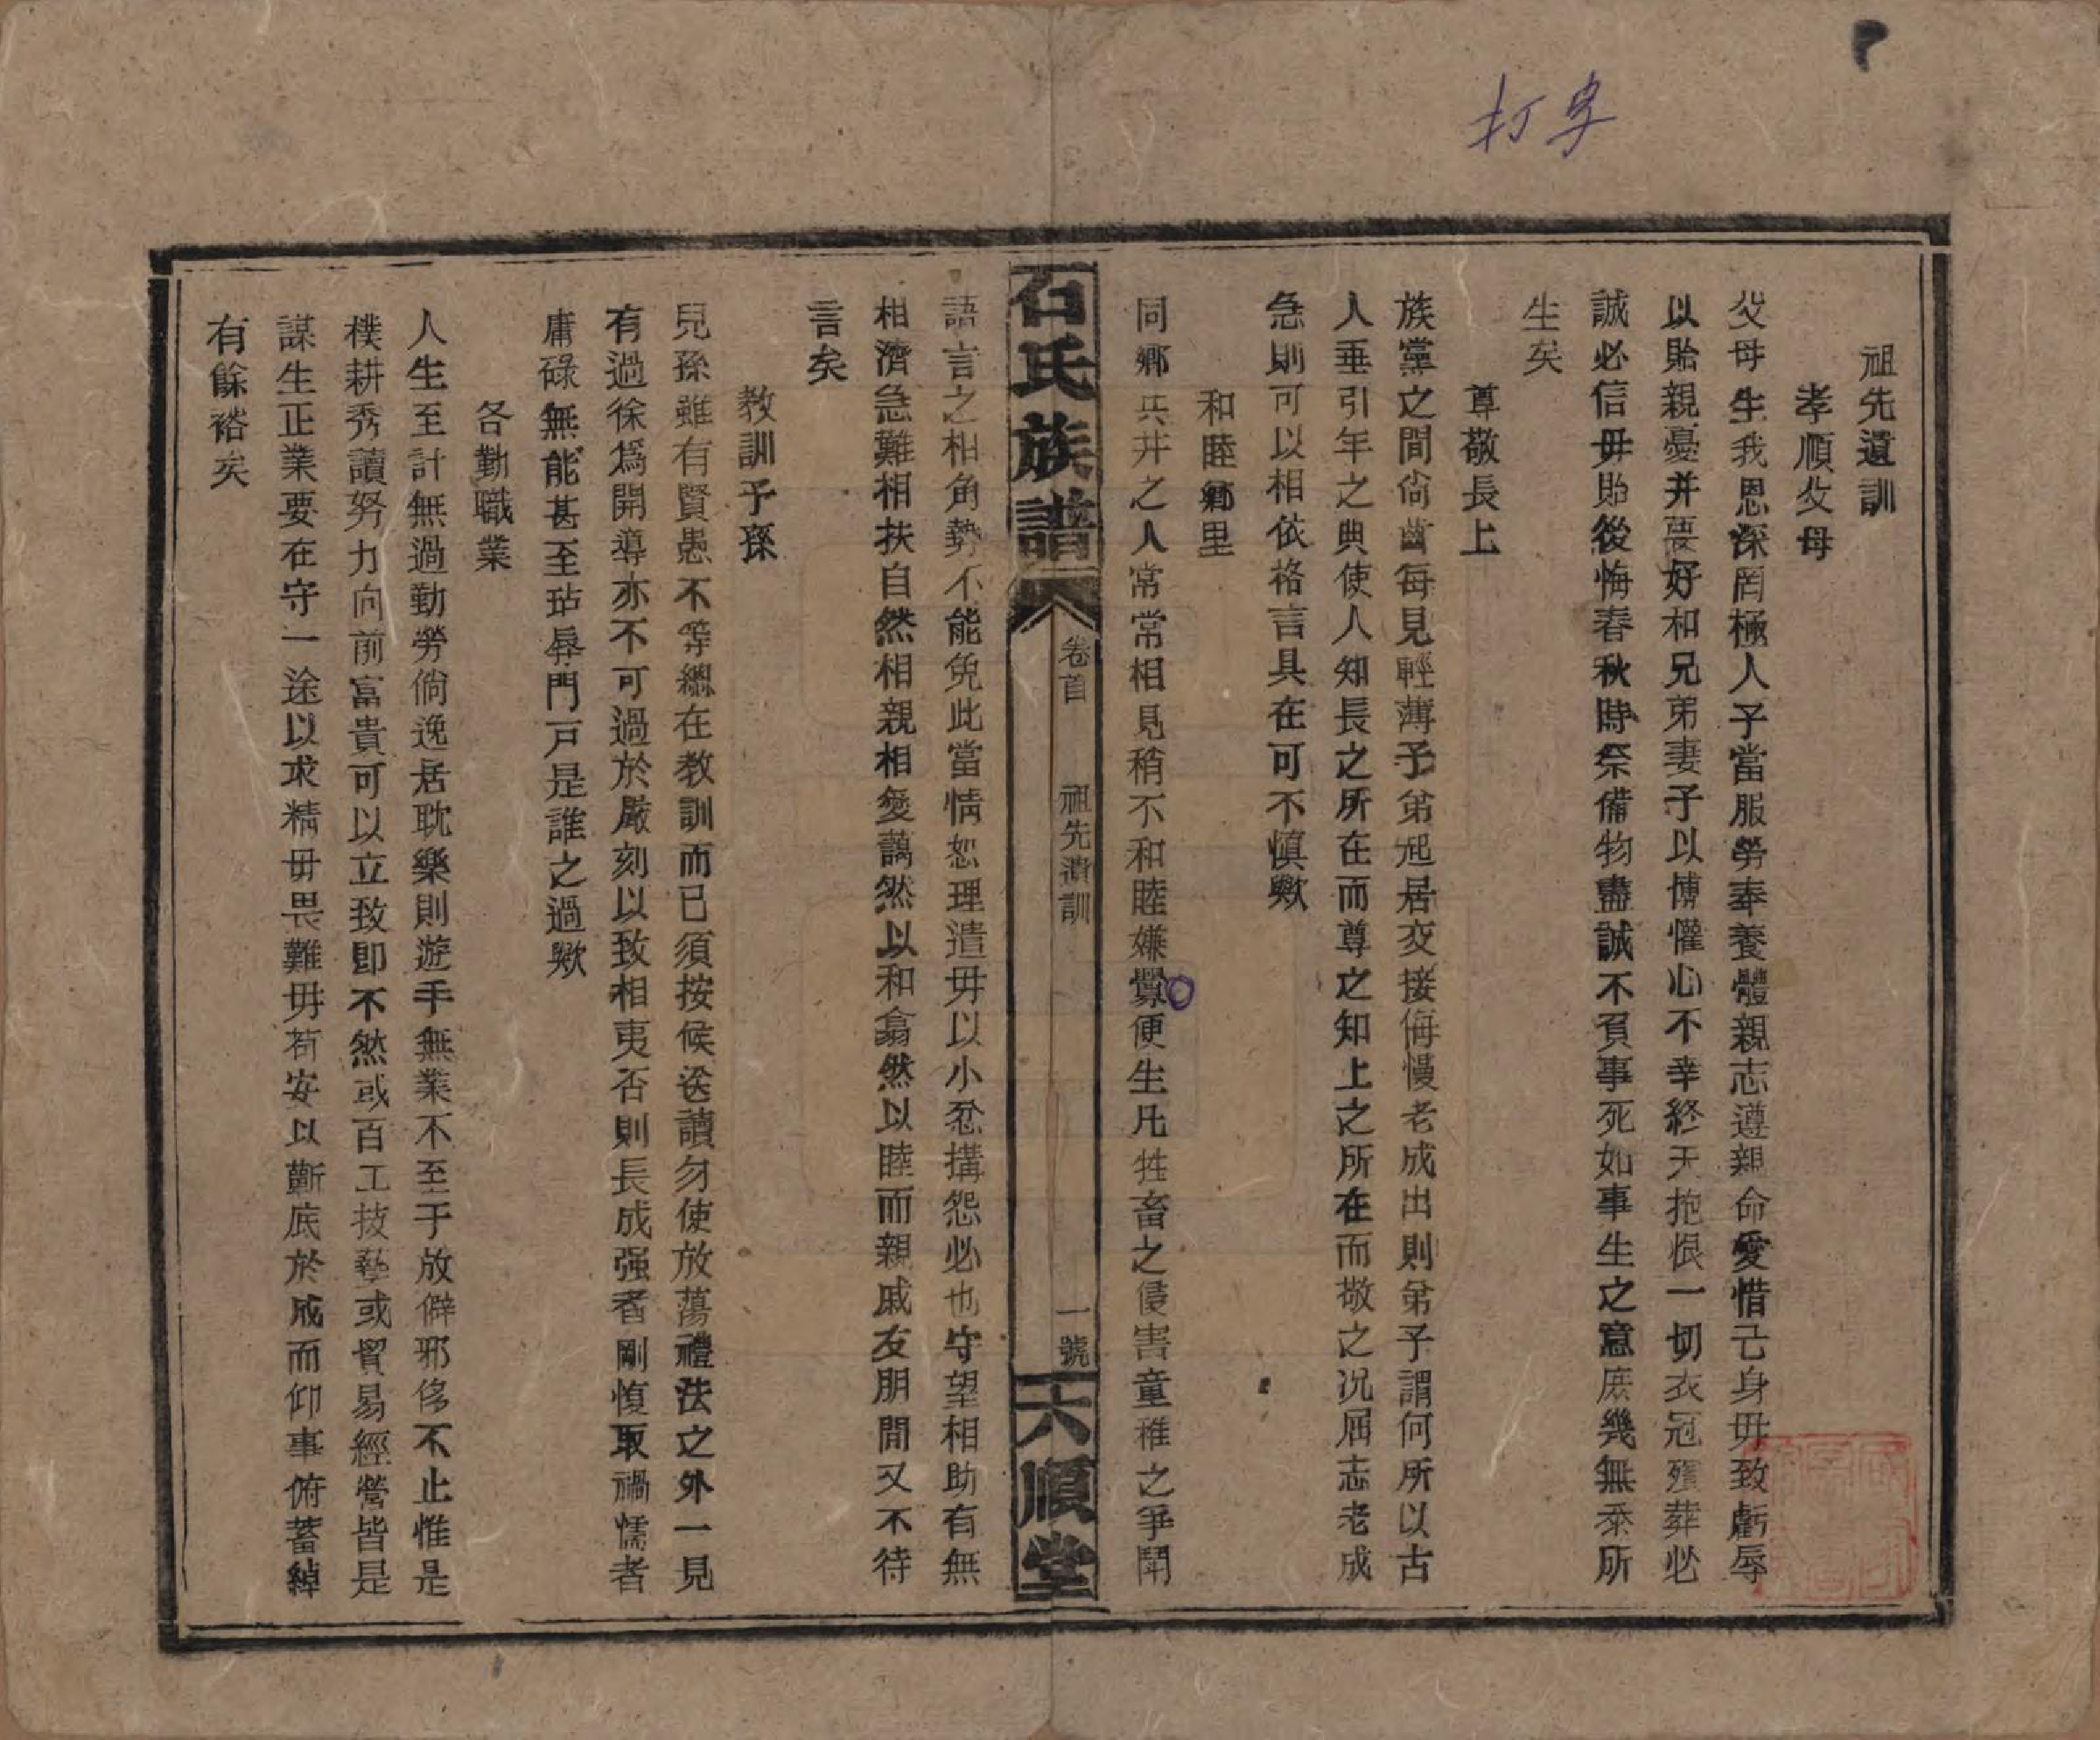 打字
祖先遺訓
孝順父母
父母生我恩深罔極人子當服勞奉養體親志遵親命愛惜己身毋致虧辱
以貽親憂并要好和兄弟妻子以博懽心不幸終天抱恨一切衣冠殯葬必
誠必信毋貽後悔春秋時祭備物盡誠不負事死如事生之意庶幾無忝所
生矣
尊敬長上
族黨之間尙齒每見輕薄子弟起居交接侮慢老成出則弟子謂何所以古
人垂引年之典使人知長之所在而尊之知上之所在而敬之况屈志老成
急則可以相依格言具在可不慎歟
和睦鄉里
同鄉共井之人常常相見稍不和睦嫌釁便生凡牲畜之侵害童稚之爭鬧
石氏族譜
卷首
祖先遺訓
一號
六順堂
語言之相角勢不能免此當情恕理遣毋以小忿搆怨必也守望相助有無
相濟急難相扶自然相親相愛藹然以和翕然以睦而親戚友朋閒又不待
言矣
教訓子孫
兒孫雖有賢愚不等總在教訓而已須按候送讀勿使放蕩禮法之外一見
有過徐爲開導亦不可過於嚴刻以致相夷否則長成强者剛愎取禍懦者
庸碌無能甚至玷辱門戸是誰之過歟
各勤職業
人生至計無過勤勞倘逸居耽樂則遊手無業不至于放僻邪侈不止惟是
樸耕秀讀努力向前富貴可以立致即不然或百工技藝或貿易經營皆是
謀生正業要在守一途以求精毋畏難毋苟安以蘄底於成而仰事俯蓄綽
有餘裕矣